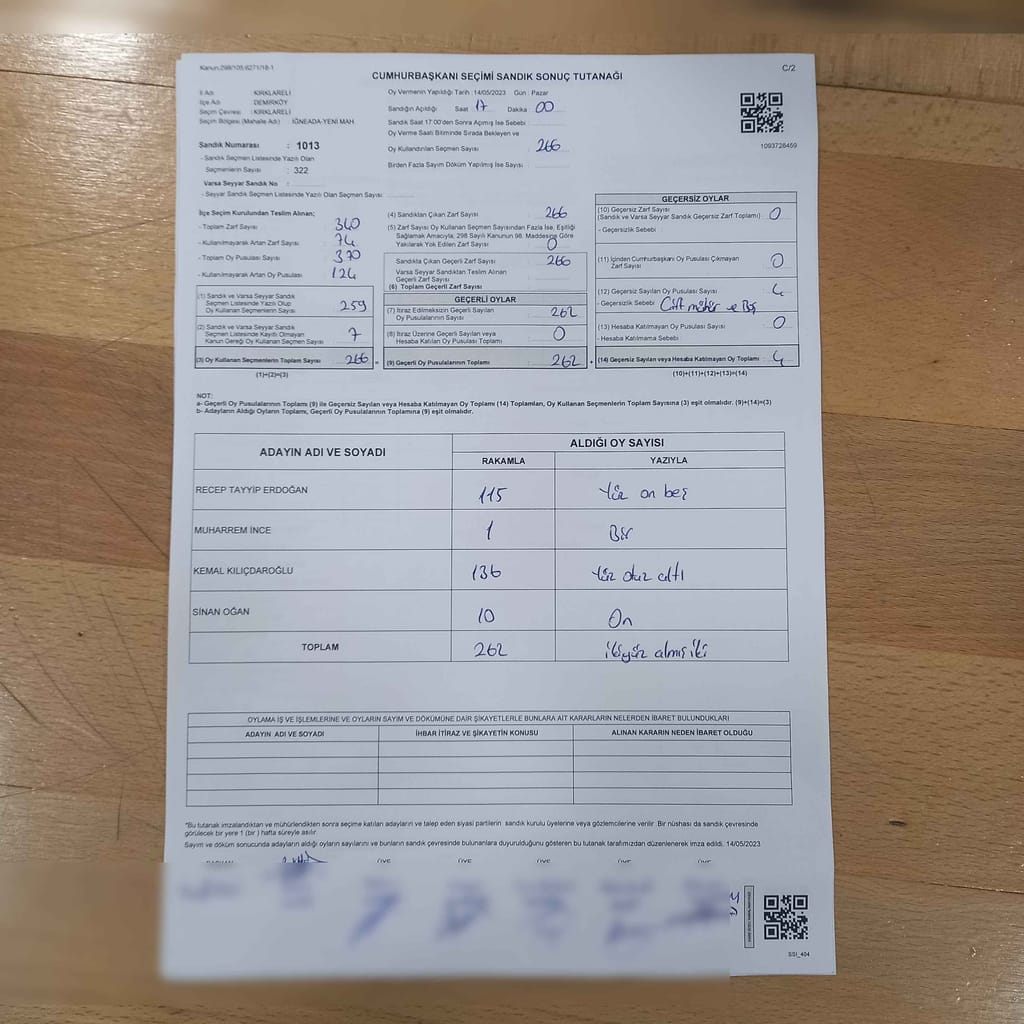 Kanun:298/105-6271/18-1
C/2
CUMHURBAŞKANI SEÇİMİ SANDIK SONUÇ TUTANAĞI
İl Adı : KIRKLARELİ
İlçe Adı : DEMİRKÖY
Seçim Çevresi : KIRKLARELİ
Seçim Bölgesi (Mahalle Adı) : İĞNEADA-YENİ MAH.
Sandık Numarası : 1013
- Sandık Seçmen Listesinde Yazılı Olan
Seçmenlerin Sayısı : 322
Varsa Seyyar Sandık No :
- Seyyar Sandık Seçmen Listesinde Yazılı Olan Seçmen Sayısı:
Oy Vermenin Yapıldığı Tarih : 14/05/2023 Gün : Pazar
Sandığın Açıldığı Saat 17 Dakika 00
Sandık Saat 17:00'den Sonra Açmış İse Sebebi :
Oy Verme Saati Bitiminde Sırada Bekleyen ve
Oy Kullandırılan Seçmen Sayısı : 266
Birden Fazla Sayım Döküm Yapılmış İse Sayısı :
1093728459
İlçe Seçim Kurulundan Teslim Alınan;
- Toplam Zarf Sayısı : 340
- Kullanılmayarak Artan Zarf Sayısı : 74
- Toplam Oy Pusulası Sayısı : 370
- Kullanılmayarak Artan Oy Pusulası : 124
(1) Sandık ve Varsa Seyyar Sandık
Seçmen Listesinde Yazılı Olup
Oy Kullanan Seçmenlerin Sayısı : 259
(2) Sandık ve Varsa Seyyar Sandık
Seçmen Listesinde Kayıtlı Olmayan
Kanun Gereği Oy Kullanan Seçmen Sayısı : 7
(3) Oy Kullanan Seçmenlerin Toplam Sayısı : 266
(1)+(2)=(3)
(4) Sandıktan Çıkan Zarf Sayısı : 266
(5) Zarf Sayısı Oy Kullanan Seçmen Sayısından Fazla İse, Eşitliği
Sağlamak Amacıyla, 298 Sayılı Kanunun 98. Maddesine Göre
Yakılarak Yok Edilen Zarf Sayısı : 0
Sandıkta Çıkan Geçerli Zarf Sayısı : 266
Varsa Seyyar Sandıktan Teslim Alınan
Geçerli Zarf Sayısı :
(6) Toplam Geçerli Zarf Sayısı :
GEÇERLİ OYLAR
(7) İtiraz Edilmeksizin Geçerli Sayılan
Oy Pusulalarının Sayısı : 262
(8) İtiraz Üzerine Geçerli Sayılan veya
Hesaba Katılan Oy Pusulası Toplamı : 0
= (9) Geçerli Oy Pusulalarının Toplamı : 262 +
GEÇERSİZ OYLAR
(10) Geçersiz Zarf Sayısı
(Sandık ve Varsa Seyyar Sandık Geçersiz Zarf Toplamı) : 0
- Geçersizlik Sebebi :
(11) İçinden Cumhurbaşkanı Oy Pusulası Çıkmayan
Zarf Sayısı : 0
(12) Geçersiz Sayılan Oy Pusulası Sayısı : 4
- Geçersizlik Sebebi : Çift mühür ve Boş
(13) Hesaba Katılmayan Oy Pusulası Sayısı : 0
- Hesaba Katılmama Sebebi
(14) Geçersiz Sayılan veya Hesaba Katılmayan Oy Toplamı : 4
(10)+(11)+(12)+(13)=(14)
NOT:
a- Geçerli Oy Pusulalarının Toplamı (9) ile Geçersiz Sayılan veya Hesaba Katılmayan Oy Toplamı (14) Toplamları, Oy Kullanan Seçmenlerin Toplam Sayısına (3) eşit olmalıdır. (9)+(14)=(3)
b- Adayların Aldığı Oyların Toplamı, Geçerli Oy Pusulalarının Toplamına (9) eşit olmalıdır.
ADAYIN ADI VE SOYADI
ALDIĞI OY SAYISI
RAKAMLA YAZIYLA
RECEP TAYYİP ERDOĞAN 115 Yüz on beş
MUHARREM İNCE 1 Bir
KEMAL KILIÇDAROĞLU 136 Yüz otuz altı
SİNAN OĞAN 10 On
TOPLAM 262 ikiyüz almış iki
OYLAMA İŞ VE İŞLEMLERİNE VE OYLARIN SAYIM VE DÖKÜMÜNE DAİR ŞİKAYETLERLE BUNLARA AİT KARARLARIN NELERDEN İBARET BULUNDUKLARI
ADAYIN ADI VE SOYADI İHBAR İTİRAZ VE ŞİKAYETİN KONUSU ALINAN KARARIN NEDEN İBARET OLDUĞU
*Bu tutanak imzalandıktan ve mühürlendikten sonra seçime katılan adayların ve talep eden siyasi partilerin sandık kurulu üyelerine veya gözlemcilerine verilir. Bir nüshası da sandık çevresinde
görülecek bir yere 1 (bir ) hafta süreyle asılır.
Sayım ve döküm sonucunda adayların aldığı oyların sayılarını ve bunların sandık çevresinde bulunanlara duyurulduğunu gösteren bu tutanak tarafımızdan düzenlenerek imza edildi. 14/05/2023
SSI_404